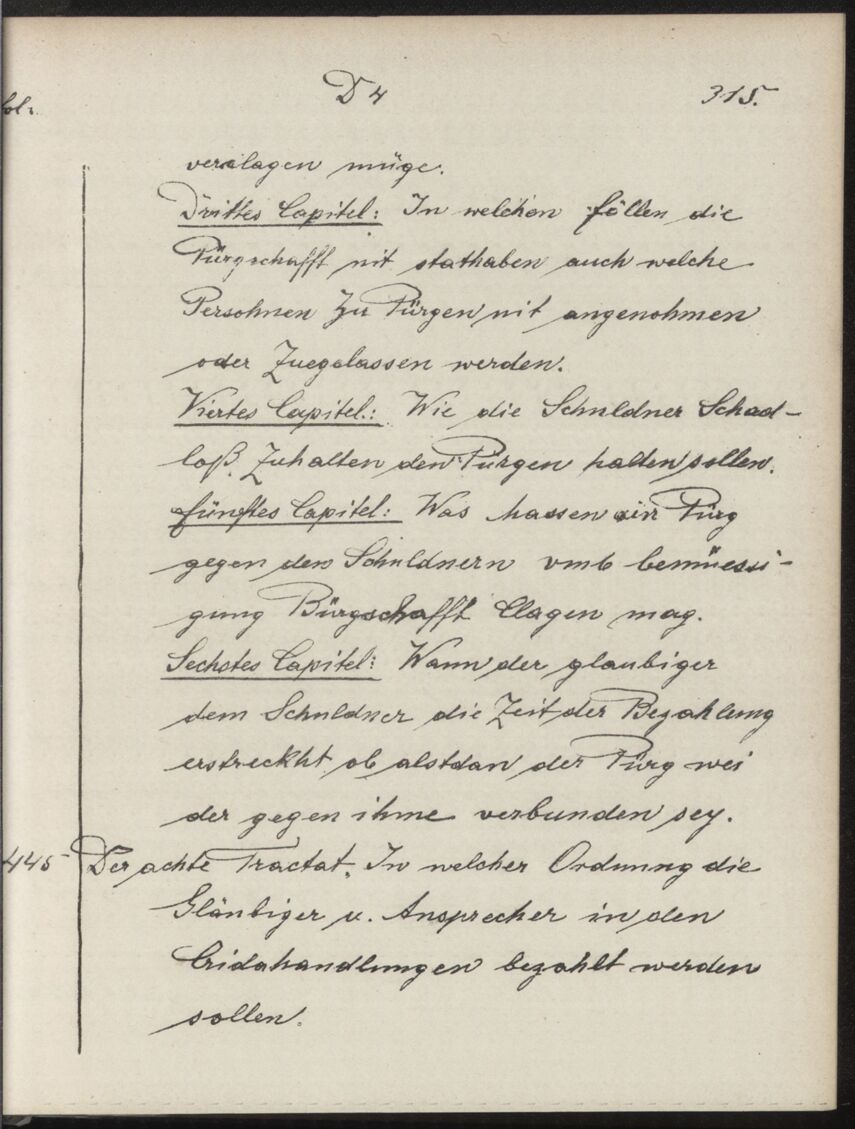 fol.
D 4
315.
verclagen müge.
Drittes Capitel: In welchen föllen die
Pürgschafft nit stathaben auch welche
Persohnen Zu Pürgen nit angenohmen
oder Zuegelassen werden.
Viertes Capitel.: Wie die Schuldner Schad-
loß Zuhalten den Pürgen halten sollen.
fünftes Capitel: Was massen ein Pürg
gegen den Schuldnern vmb bemüessi-
gung Bürgschafft Clagen mag.
Sechstes Capitel: Wann der glaubiger
dem Schuldner die Zeit der Bezahlung
erstreckht ob alstdan der Pürg wei
der gegen ihme verbunden sey.
445 Der achte Tractat. In welcher Ordnung die
Gläubiger u. Ansprecher in den
Cridahandlungen bezahlt werden
sollen.